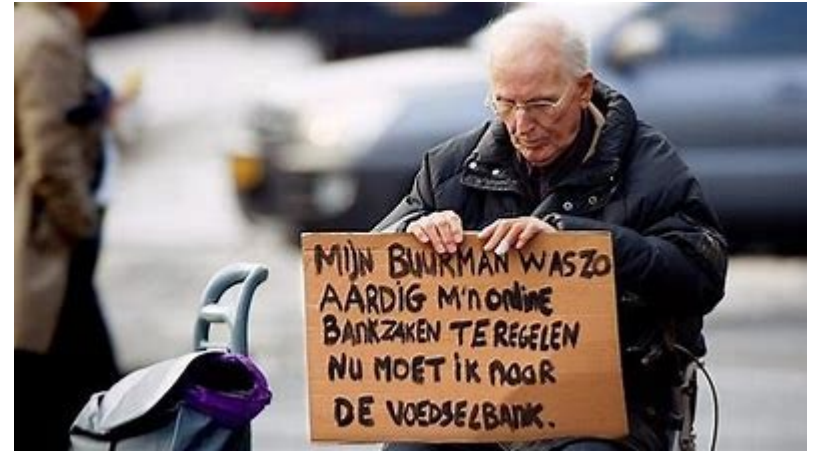 MIJN BUURMAN WAS ZO
AARDIG M'N online
BANKZAKEN TE REGELEN
NU MOET iK NAAR
DE VOEDSELBANK.